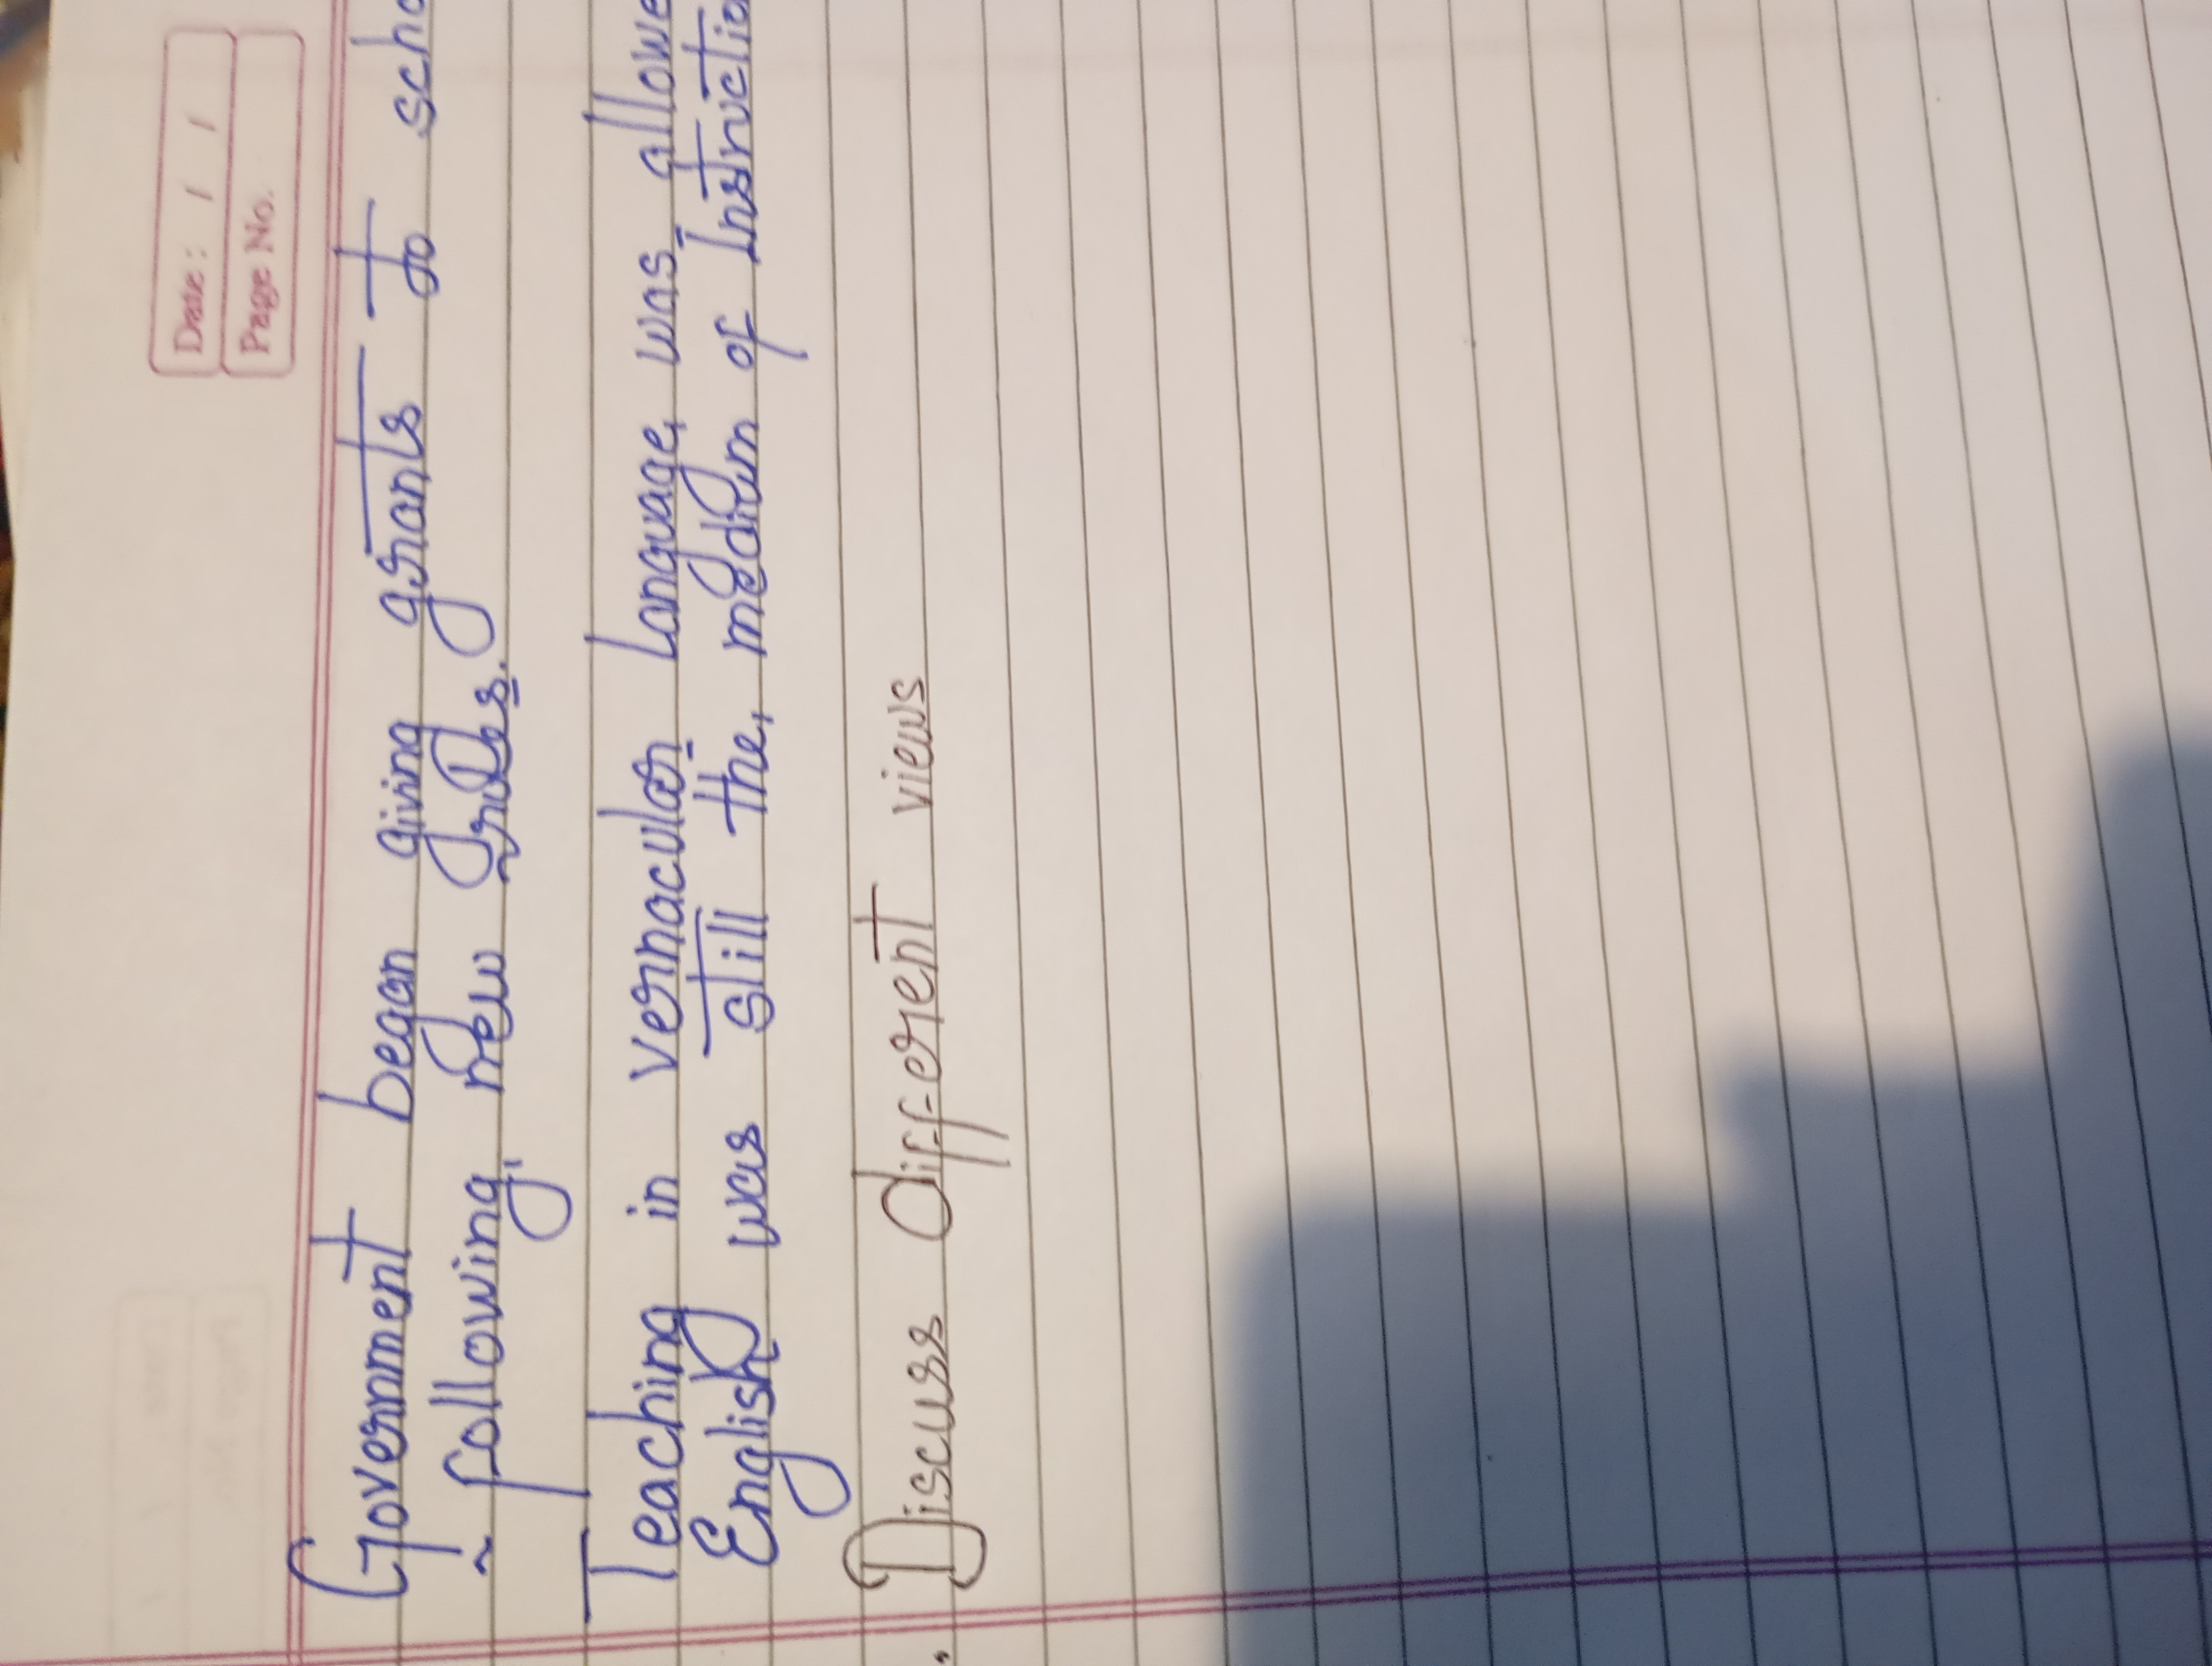 Date: / /
Page No.
Government began giving grants to scho
following new rules.
Teaching in vernacular Language was allowe
English was still the medium of Instructio
Discuss different views